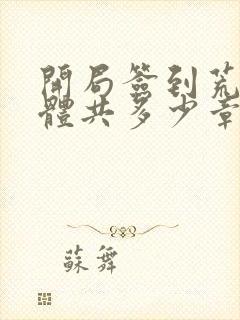 開局簽到荒
體共多少章
蘇舞